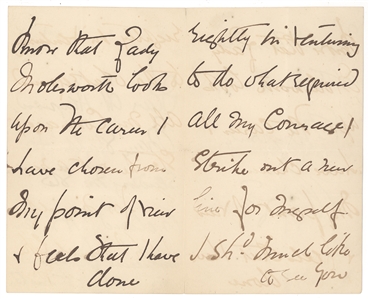 know that Lady
Molesworth looks
upon the career I
have chosen from
my point of view
& feels that I have
done
rightly in venturing
to do what required
all my Courage!
Strike out a new
line for myself
I shd. much like
to see you